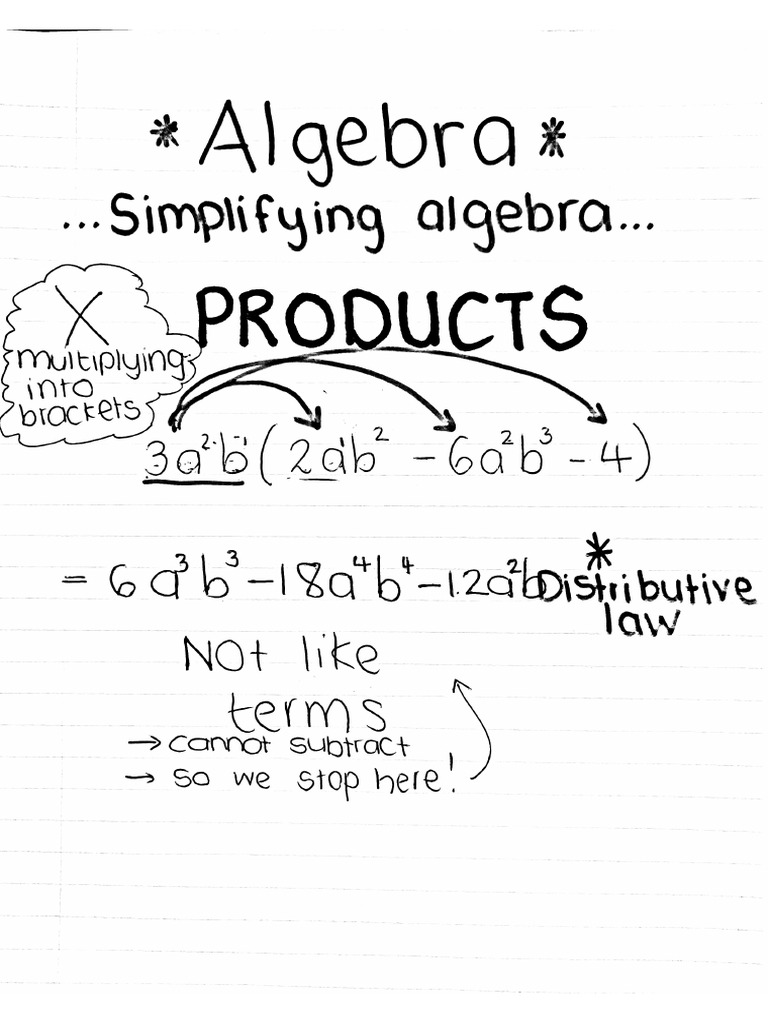 *Algebra*
...Simplifying algebra...
PRODUCTS
X
multiplying
into
brackets
3a²b(2ab² - 6a²b³ - 4)
= 6a³b³ - 18a⁴b⁴ - 12a²b
*
Distributive
law
Not like
terms
→ cannot subtract
→ so we stop here!